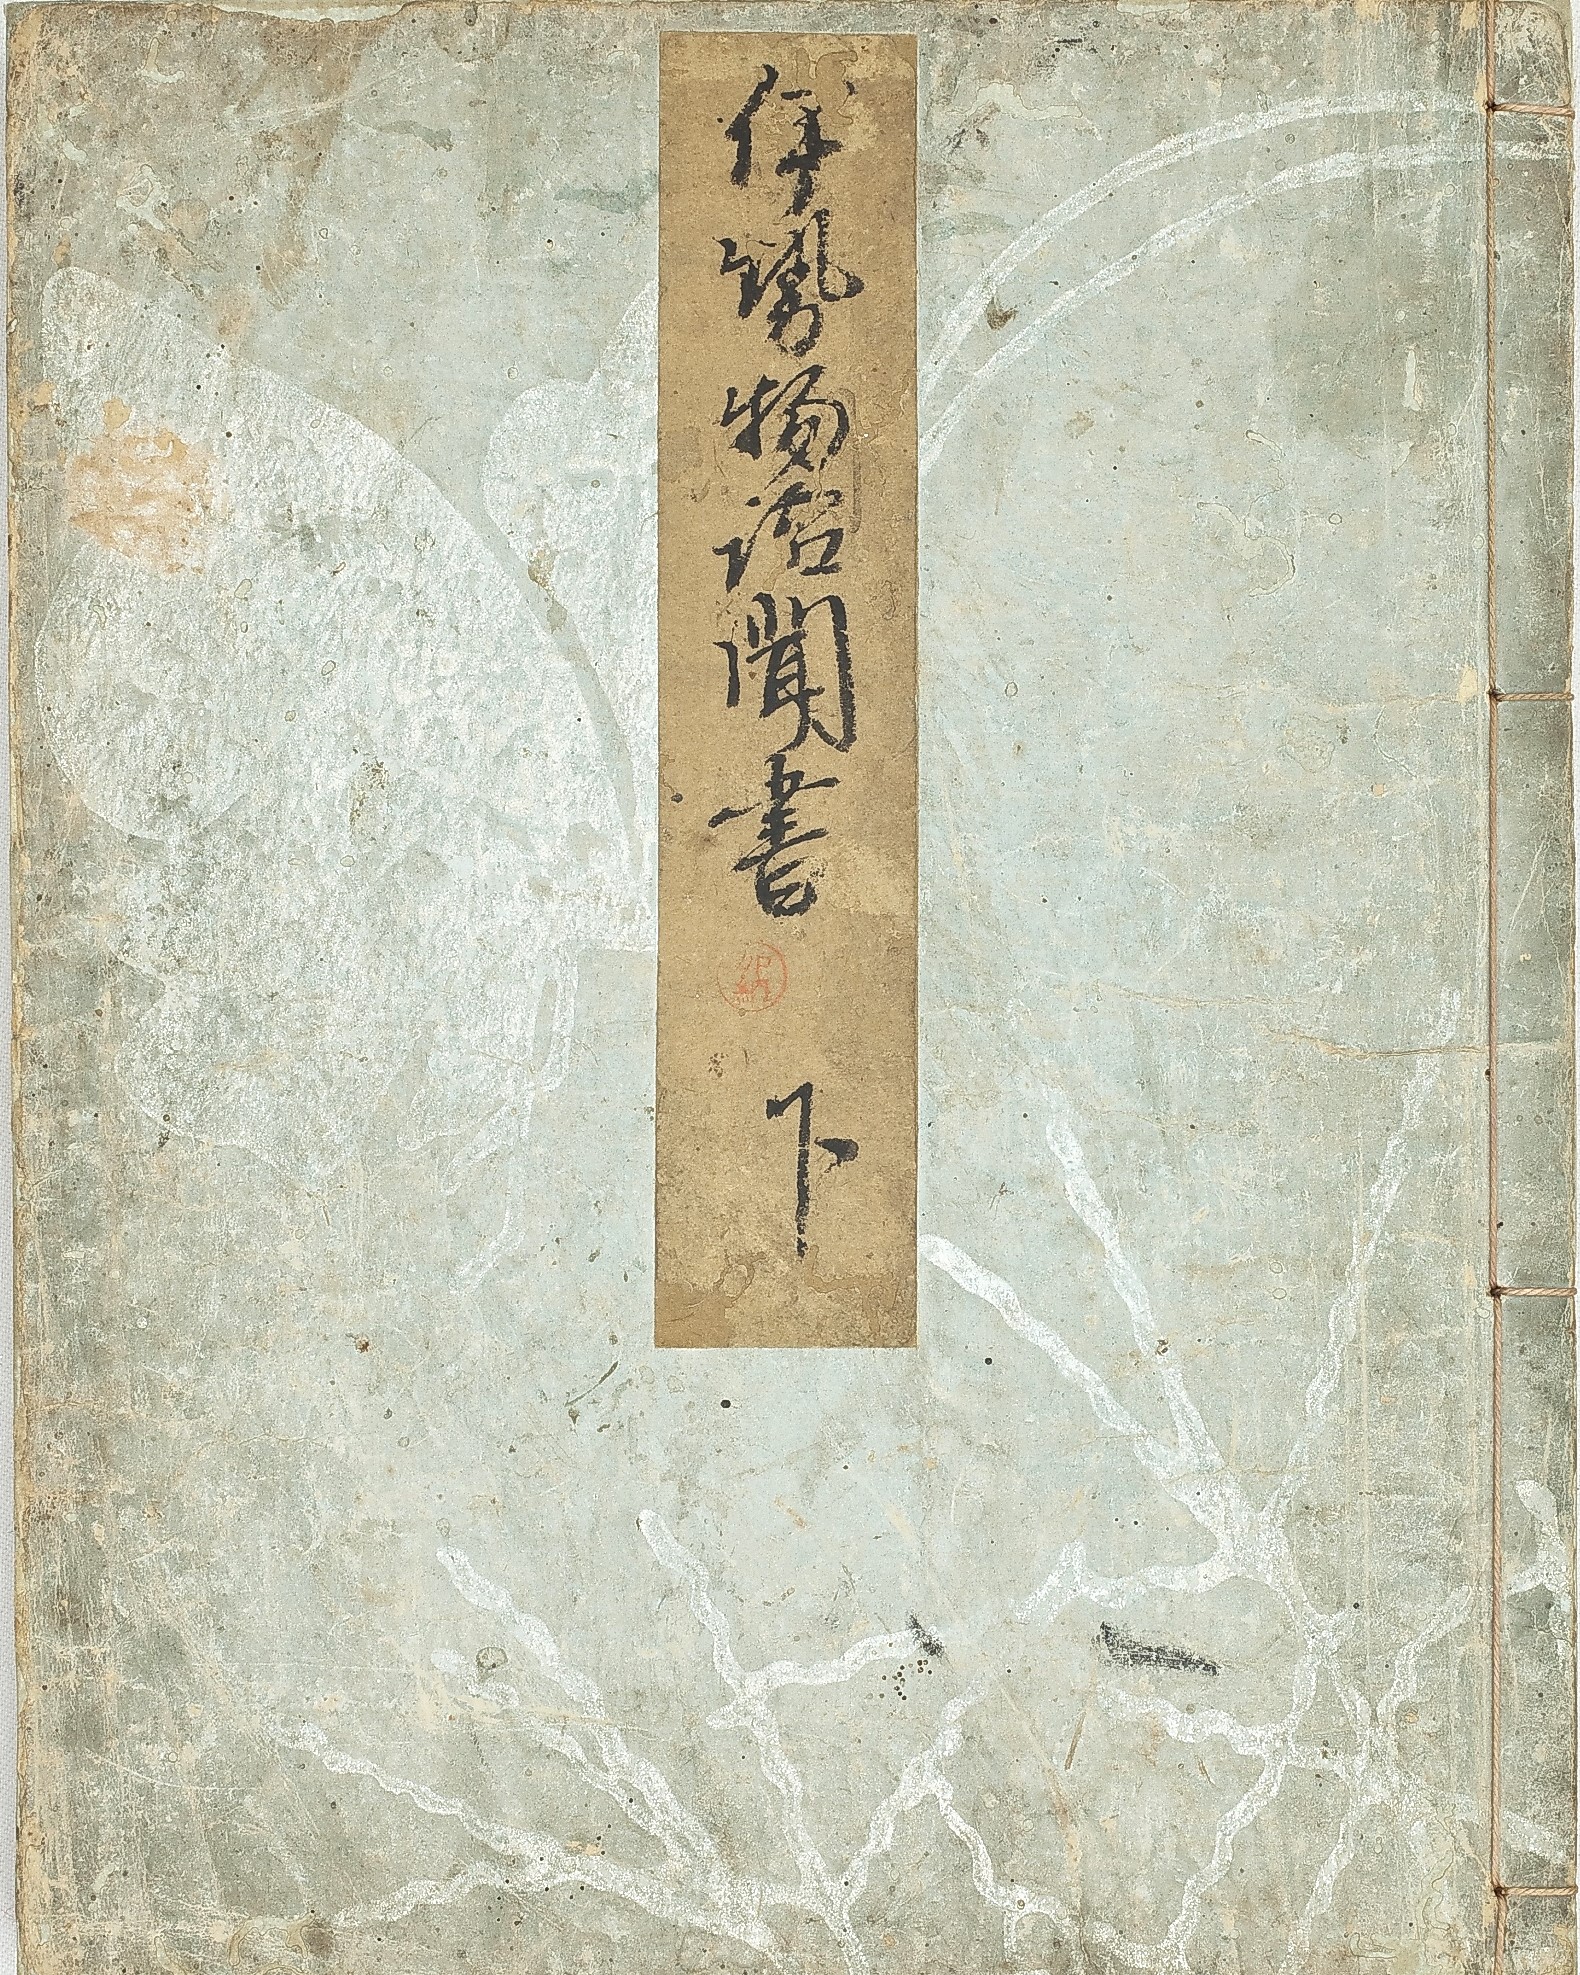 伊勢物語聞書
下